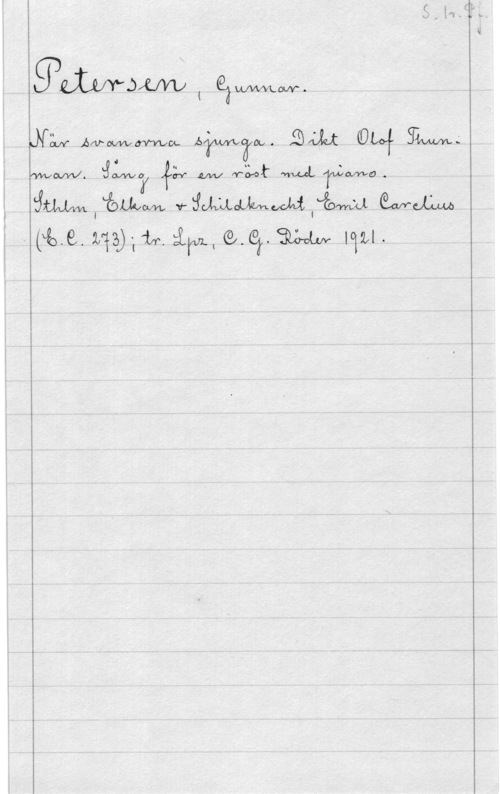 S. 1r. Pf.
Petersen, Gunnar.
När svanorna sjunga. Dikt Olof Thun-
man. Sång för en röst med piano.
Sthlm, Elkan & Schildknecht, Emil Carelius
(E.C. 273); tr. Lpz, C.G. Röder 1921.